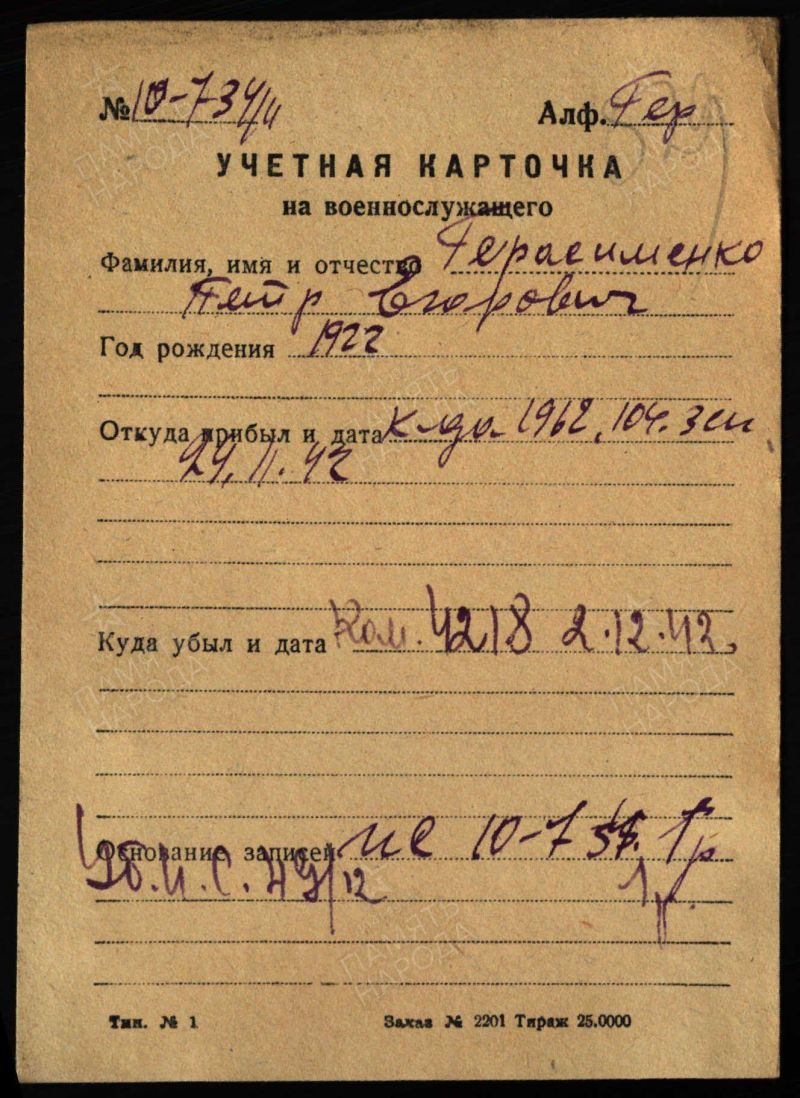 № 10-734/11 Алф. Гер
УЧЕТНАЯ КАРТОЧКА
на военнослужащего
Фамилия, имя и отчество Герасименко
Петр Егорович
Год рождения 1922
Откуда прибыл и дата к-да 1962, 104. зсп
29.11.42
Куда убыл и дата Ком. 4218 2.12.42.
Основание записей ИС 10-7
Тип. № 1 Заказ № 2201 Тираж 25.0000
ПАМЯТЬ НАРОДА